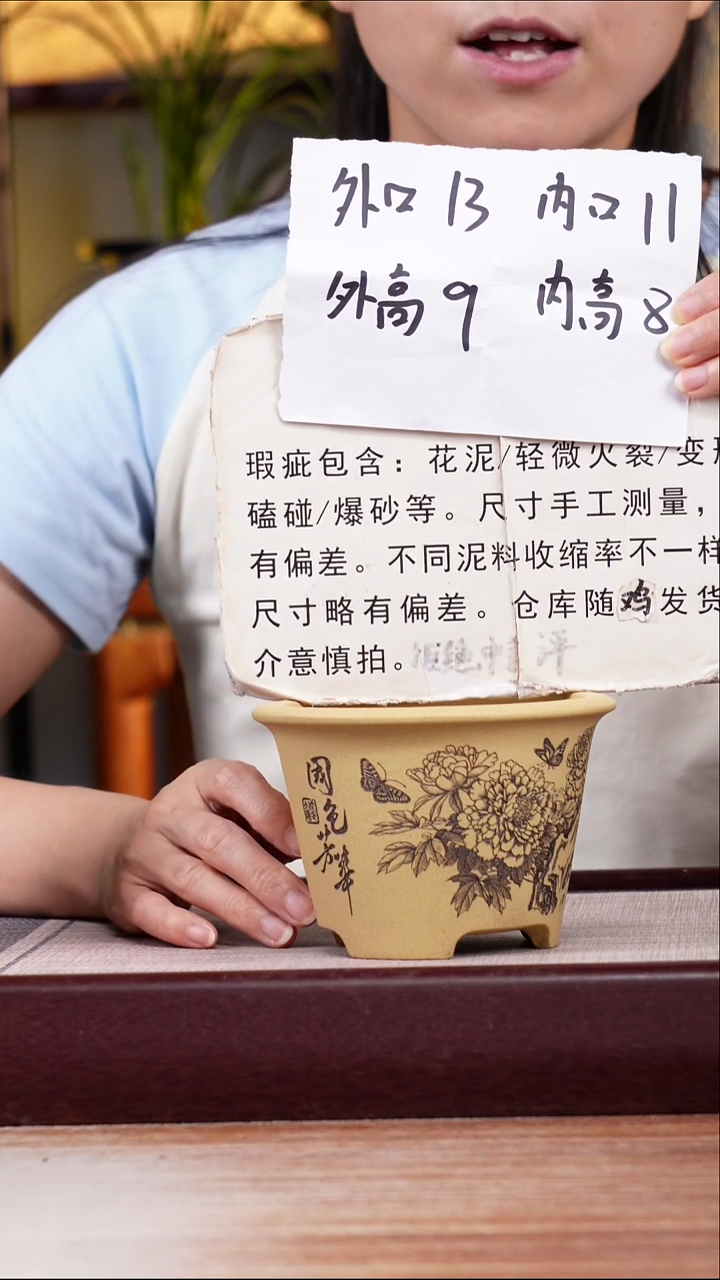 外口 13 内口 11
外高 9 内高 8
瑕疵包含：花泥/轻微火裂/变形
磕碰/爆砂等。尺寸手工测量，
有偏差。不同泥料收缩率不一样
尺寸略有偏差。仓库随鸡发货
介意慎拍。
国色芳华